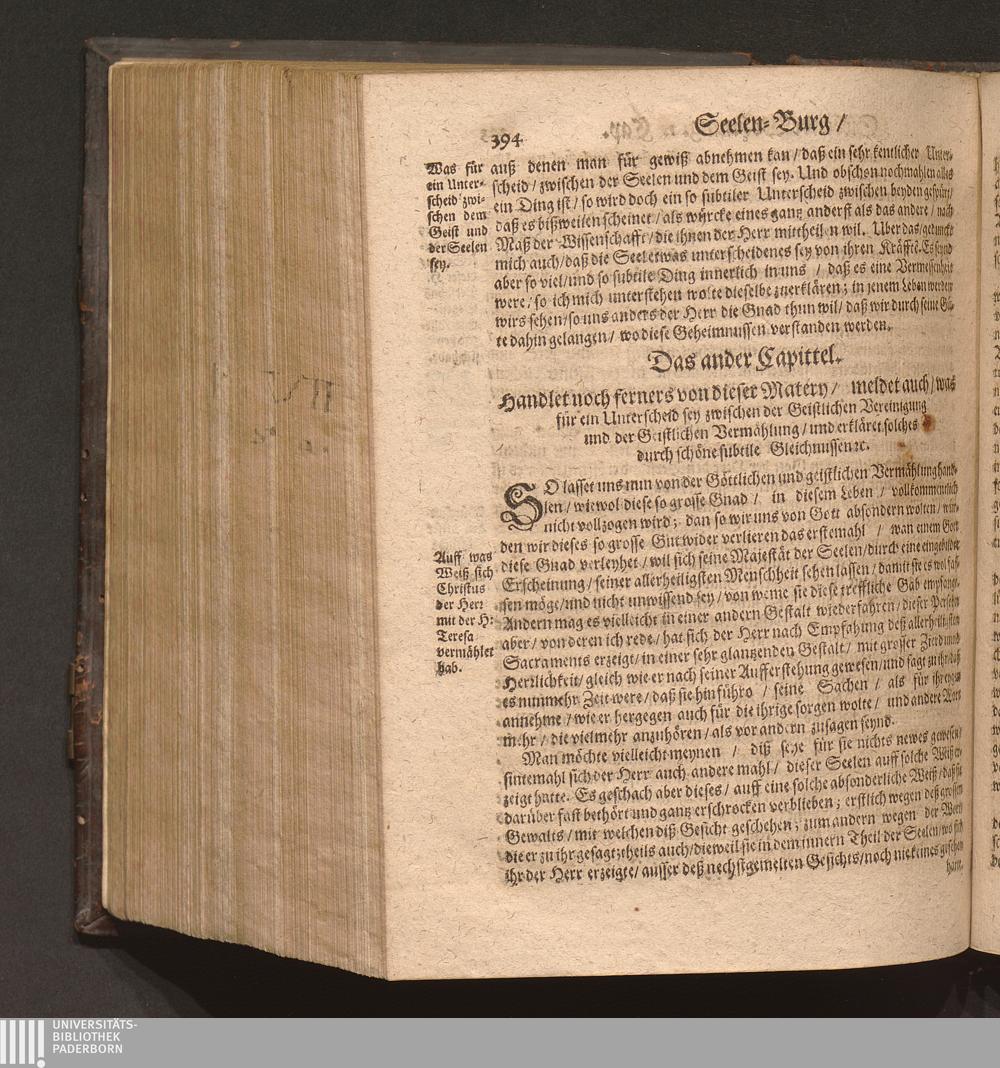 394
Seelen-Burg /
Was für
ein Unter-
scheid zwi-
schen dem
Geist und
der Seelen
sey.
auß denen man für gewiß abnehmen kan / daß ein sehr kentlicher Unter-
scheid / zwischen der Seelen und dem Geist sey. Und obschon nochmahlen alles
ein Ding ist / so wird doch ein so subtiler Unterscheid zwischen beyden gespürt /
daß es bißweilen scheinet / als würcke eines gantz anderst als das andere / nach
Maß der Wissenschafft / die ihnen der Herr mittheilen wil. Uber das / geduncket
mich auch / daß die Seel etwas unterscheidenes sey von ihren Kräfftē. Es seynd
aber so viel / und so subtile Ding innerlich in uns / daß es eine Vermessenheit
were / so ich mich unterstehen wolte dieselbe zuerklären; in jenem Leben werden
wirs sehen / so uns anders der Herr die Gnad thun wil / daß wir durch seine Gü-
te dahin gelangen / wo diese Geheimnussen verstanden werden.
Das ander Capittel.
Handlet noch ferners von dieser Matery / meldet auch / was
für ein Unterscheid sey zwischen der Geistlichen Vereinigung
und der Geistlichen Vermählung / und erkläret solches
durch schöne subtile Gleichnussen ꝛc.
Auff was
Weiß sich
Christus
der Herr
mit der H:
Teresa
vermählet
hab.
SO lasset uns nun von der Göttlichen und geistlichen Vermählung hand-
len / wiewol diese so grosse Gnad / in diesem Leben / vollkommentlich
nicht vollzogen wird; dan so wir uns von Gott absondern wolten / wür-
den wir dieses so grosse Gut wider verlieren das erstemahl / wan einem Gott
diese Gnad verleyhet / wil sich seine Majestät der Seelen / durch eine eingebildte
Erscheinung / seiner allerheiligsten Menschheit sehen lassen / damit sie es wol fas-
sen möge / und nicht unwissend sey / von weme sie diese treffliche Gab empfange.
Andern mag es vielleicht in einer andern Gestalt wiederfahren / dieser Persohn
aber / von deren ich rede / hat sich der Herr nach Empfahung deß allerheiligsten
Sacraments erzeigt / in einer sehr glantzenden Gestalt / mit grosser Zierd und
Herrlichkeit / gleich wie er nach seiner Aufferstehung gewesen / und sagt zu ihr / daß
es nunmehr Zeit were / daß sie hinführo / seine Sachen / als für ihr eygen
annehme / wie er hergegen auch für die ihrige sorgen wolte / und andere Wort
mehr / die vielmehr anzuhören / als vor andern zusagen seynd.
Man möchte vielleicht meynen / diß seye für sie nichts newes gewesen /
sintemahl sich der Herr auch andere mahl / dieser Seelen auff solche Weiß er-
zeigt hatte. Es geschach aber dieses / auff eine solche absonderliche Weiß / daß sie
darüber fast bethört und gantz erschrocken verblieben; erstlich wegen deß grossen
Gewalts / mit welchen diß Gesicht geschehen; zum andern wegen der Wort
die er zu ihr gesagt; theils auch / dieweil sie in dem innern Theil der Seelen / wo sich
ihr der Herr erzeigte / ausser deß nechstgemelten Gesichts / noch nie keines gesehen
hatte.
UNIVERSITÄTS-
BIBLIOTHEK
PADERBORN